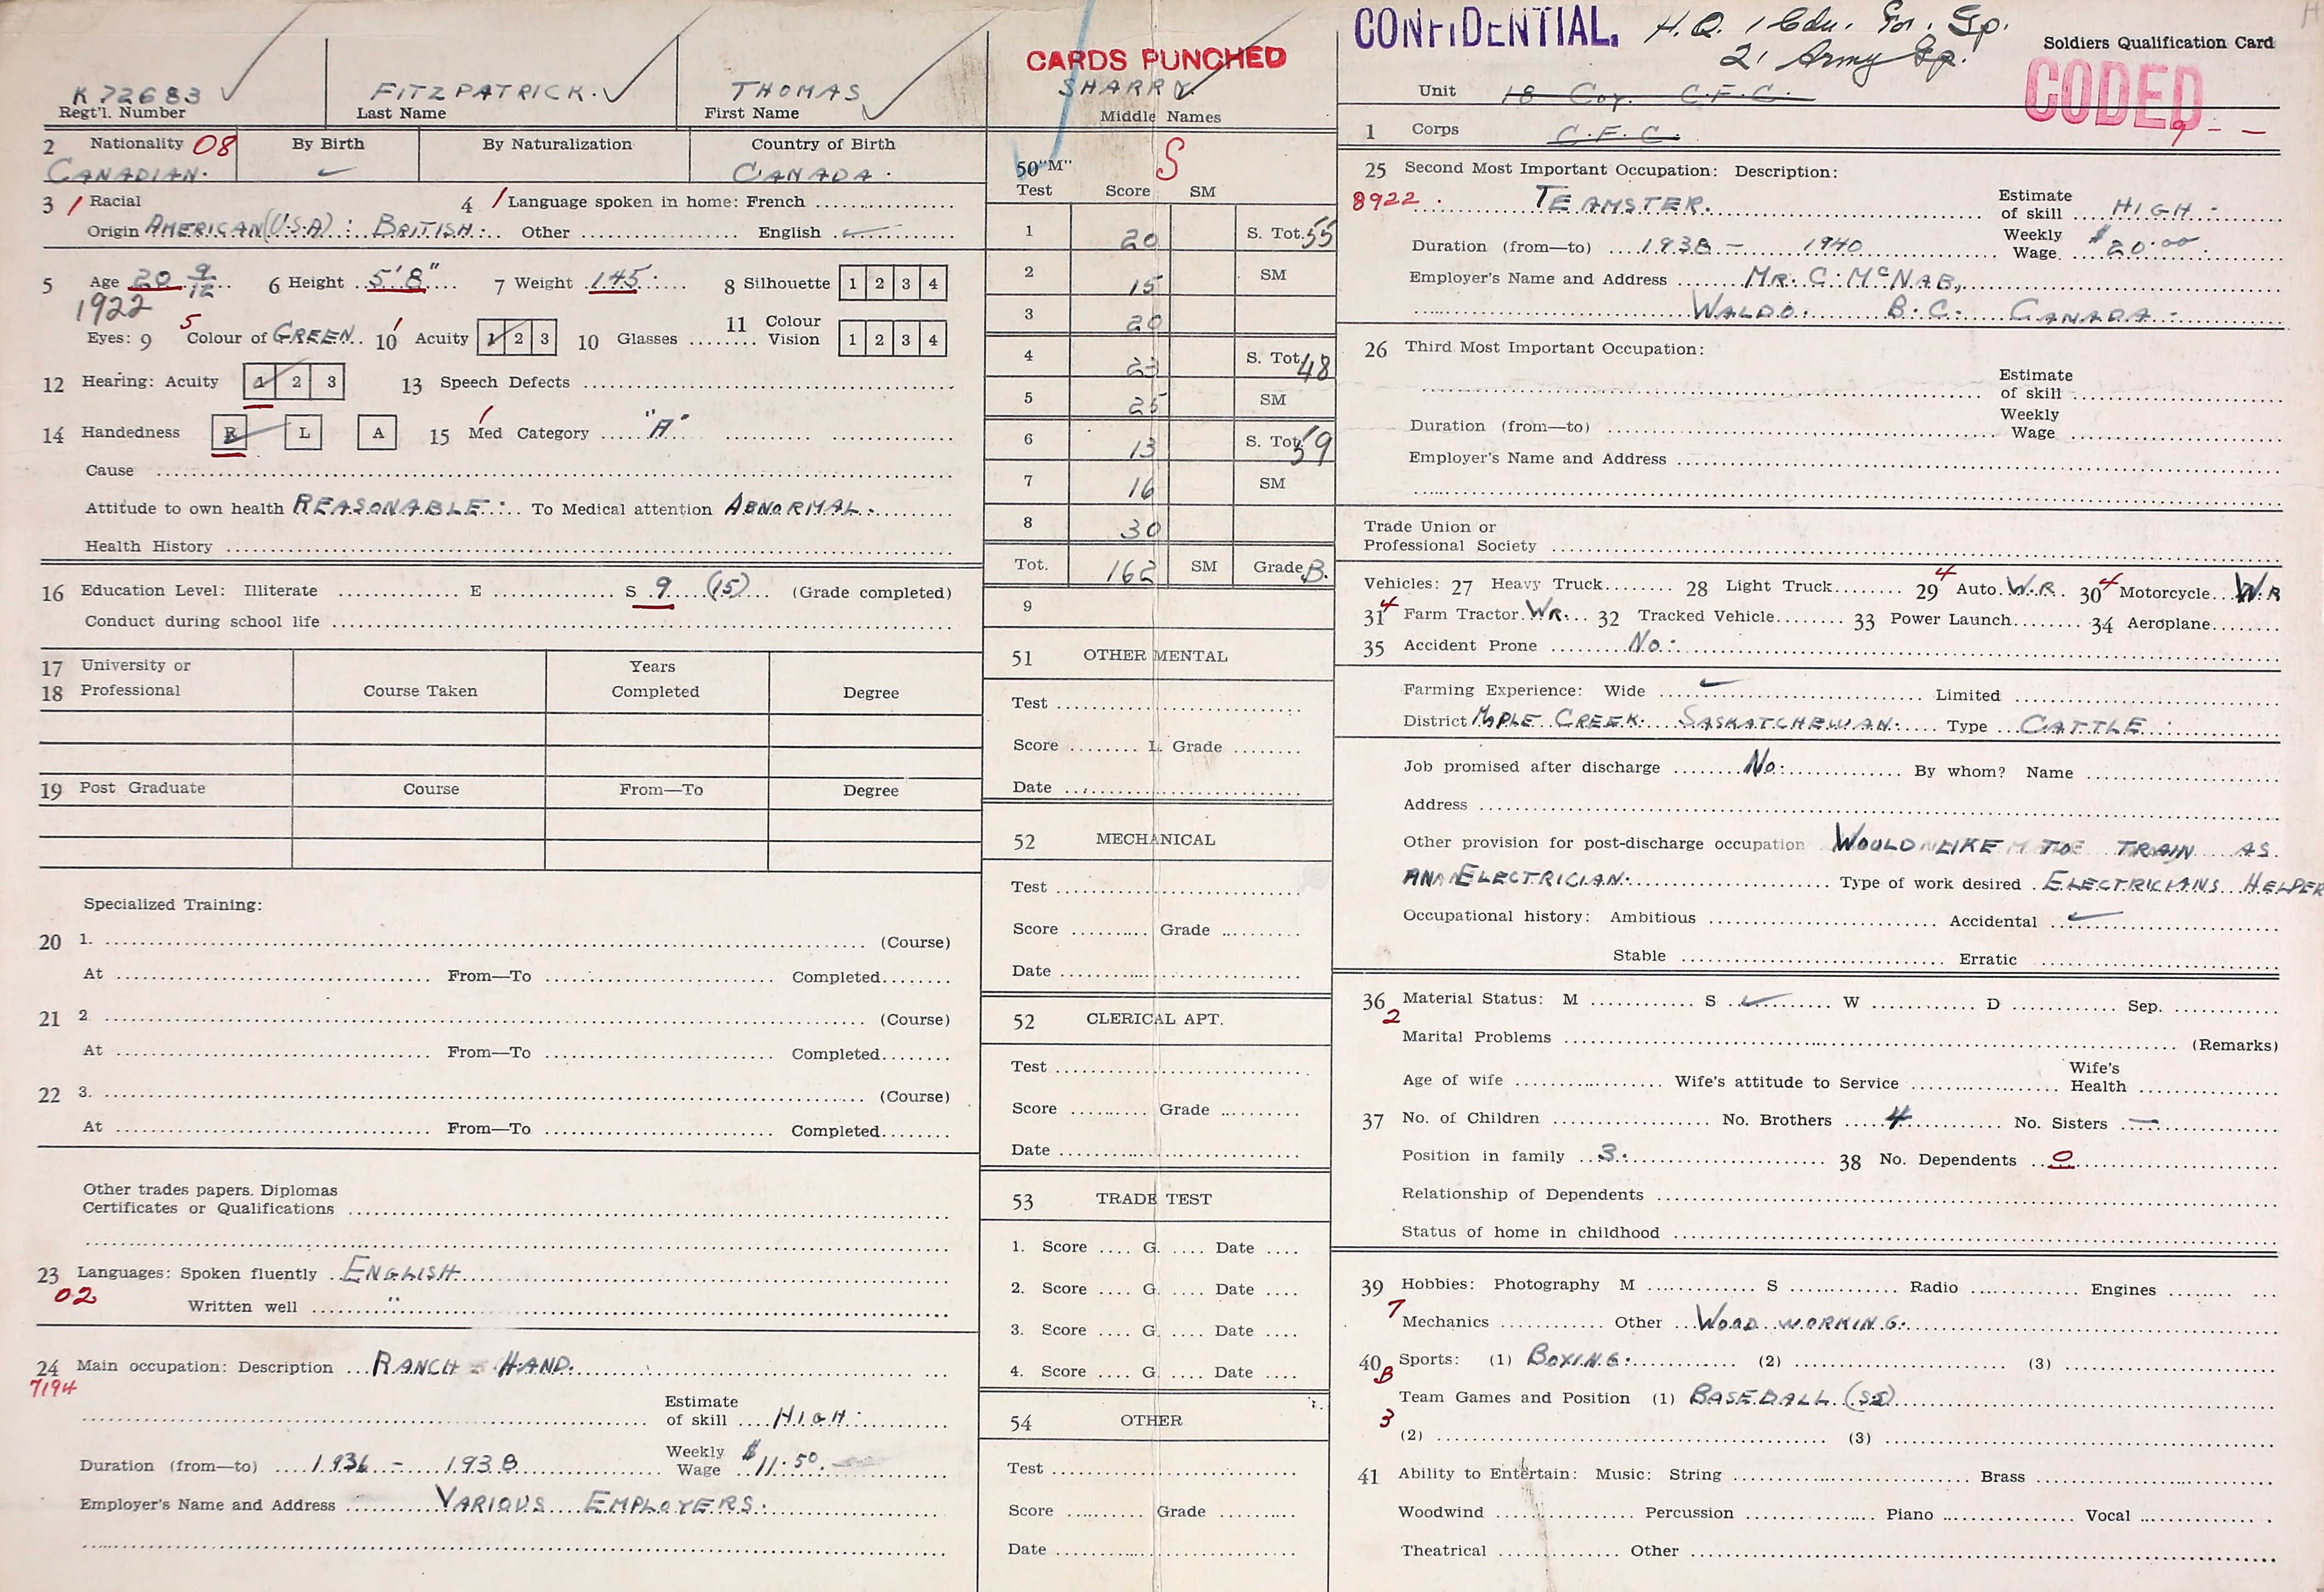 CONFIDENTIAL. H.Q. 1 Cdn. For. Gp.
21 Army Gp.
Soldiers Qualification Card
CODED
9 - -
K 72683 FITZPATRICK. THOMAS
Regt'l. Number Last Name First Name
CARDS PUNCHED
SHARRY
Middle Names
2 Nationality 08 By Birth By Naturalization Country of Birth
CANADIAN. ✓ CANADA.
3 1 Racial
Origin AMERICAN (U.S.A) : BRITISH. 4 1 Language spoken in home: French
Other English ✓
5 Age 20 9/12 6 Height 5'8" 7 Weight 145 8 Silhouette 1 2 3 4
1922
Eyes: 9 5 Colour of GREEN 10 1 Acuity 1 2 3 10 Glasses 11 Colour Vision 1 2 3 4
12 Hearing: Acuity 1 2 3 13 Speech Defects
14 Handedness R L A 15 1 Med Category "A"
Cause
Attitude to own health REASONABLE. To Medical attention ABNORMAL.
Health History
16 Education Level: Illiterate E S 9 (15) (Grade completed)
Conduct during school life
17 University or
18 Professional Course Taken Years Completed Degree
19 Post Graduate Course From—To Degree
Specialized Training:
20 1. (Course)
At From—To Completed
21 2 (Course)
At From—To Completed
22 3. (Course)
At From—To Completed
Other trades papers. Diplomas
Certificates or Qualifications
23 Languages: Spoken fluently ENGLISH
02 Written well "
24 Main occupation: Description RANCH - HAND.
7194
Estimate of skill HIGH.
Duration (from—to) 1936 - 1938 Weekly Wage $11.50
Employer's Name and Address VARIOUS EMPLOYERS.
50 "M" S
Test Score SM
1 20 S. Tot. 55
2 15 SM
3 20
4 23 S. Tot. 48
5 25 SM
6 13 S. Tot. 59
7 16 SM
8 30
Tot. 162 SM Grade B.
9
51 OTHER MENTAL
Test
Score L. Grade
Date
52 MECHANICAL
Test
Score Grade
Date
52 CLERICAL APT.
Test
Score Grade
Date
53 TRADE TEST
1. Score G. Date
2. Score G. Date
3. Score G. Date
4. Score G. Date
54 OTHER
Test
Score Grade
Date
Unit 18 Coy. C.F.C.
1 Corps C.F.C.
25 Second Most Important Occupation: Description:
8922 TEAMSTER. Estimate of skill HIGH.
Duration (from—to) 1938 - 1940 Weekly Wage $20.00
Employer's Name and Address MR. C. McNAB,
WALDO. B.C. CANADA.
26 Third Most Important Occupation:
Estimate of skill
Duration (from—to) Weekly Wage
Employer's Name and Address
Trade Union or
Professional Society
Vehicles: 27 Heavy Truck 28 Light Truck 29 4 Auto W.R. 30 4 Motorcycle W.R
31 4 Farm Tractor WR. 32 Tracked Vehicle 33 Power Launch 34 Aeroplane
35 Accident Prone No.
Farming Experience: Wide ✓ Limited
District MAPLE CREEK. SASKATCHEWAN. Type CATTLE
Job promised after discharge No. By whom? Name
Address
Other provision for post-discharge occupation WOULD LIKE TO TRAIN AS
AN ELECTRICIAN. Type of work desired ELECTRICIANS HELPER
Occupational history: Ambitious Accidental ✓
Stable Erratic
36 Material Status: M S ✓ W D Sep.
2
Marital Problems (Remarks)
Age of wife Wife's attitude to Service Wife's Health
37 No. of Children No. Brothers 4 No. Sisters —
Position in family 3. 38 No. Dependents 0
Relationship of Dependents
Status of home in childhood
39 Hobbies: Photography M S Radio Engines
7 Mechanics Other WOOD WORKING.
40 Sports: (1) BOXING. (2) (3)
B
Team Games and Position (1) BASEBALL (SS)
3
(2) (3)
41 Ability to Entertain: Music: String Brass
Woodwind Percussion Piano Vocal
Theatrical Other